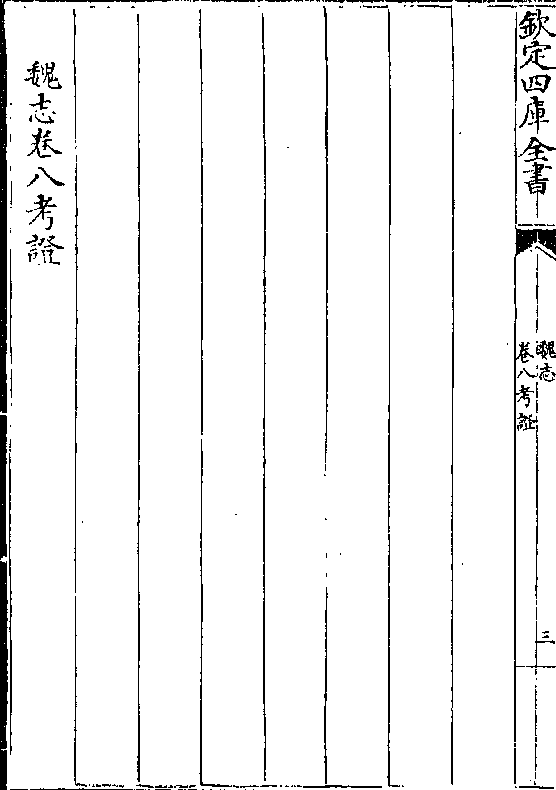 欽定四庫全書
魏志
卷八考證
三
魏志卷八考證